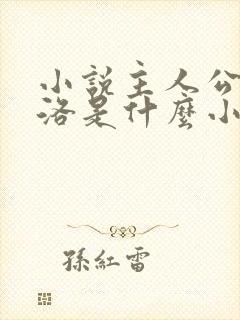 小說主人公
洛是什麼小
孫紅雷